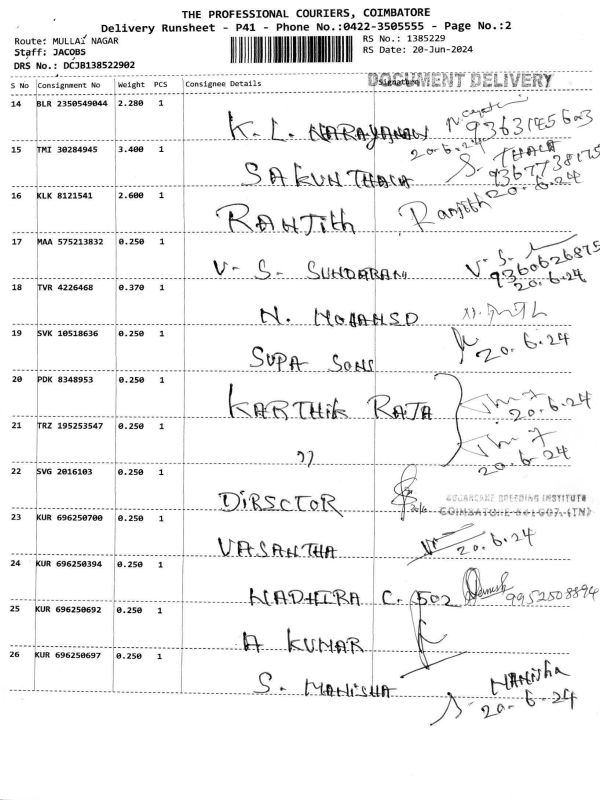 THE PROFESSIONAL COURIERS, COIMBATORE
Delivery Runsheet - P41 - Phone No.:0422-3505555 - Page No.:2
Route: MULLAI NAGAR
RS No.: 1385229
Staff: JACOBS
RS Date: 20-Jun-2024
DRS No.: DCJB138522902
DOCUMENT DELIVERY
S No Consignment No Weight PCS Consignee Details Signature
14 BLR 2350549044 2.280 1
K. L. NARAYANAN
20.6.24
15 TMI 30284945 3.400 1
SAKUNTHALA S. THALA
9367738175
20.6.24
16 KLK 8121541 2.600 1
RANJITH Ranjith
17 MAA 575213832 0.250 1
V. S. SUNDARAM V. S.
9360626875
20.6.24
18 TVR 4226468 0.370 1
N.
19 SVK 10518636 0.250 1
SUPA SONS 20.6.24
20 PDK 8348953 0.250 1
KARTHIK RAJA 20.6.24
21 TRZ 195253547 0.250 1
"
20.6.24
22 SVG 2016103 0.250 1
DIRSCTOR
SUGARCANE BREEDING INSTITUTE
COIMBATORE-641007.(TN)
23 KUR 696250700 0.250 1
VASANTHA 20.6.24
24 KUR 696250394 0.250 1
NADHIRA C. 502 9952508894
25 KUR 696250692 0.250 1
A KUMAR
26 KUR 696250697 0.250 1
S. MANISHA S. MANisha
20.6.24